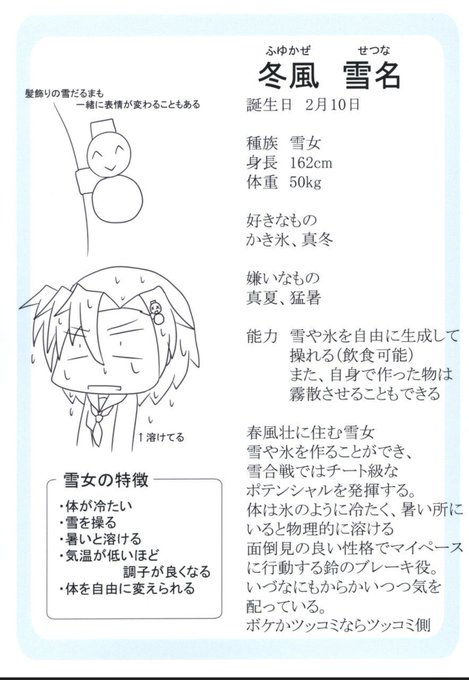 ふゆかぜ せつな
冬風 雪名
誕生日 2月10日
種族 雪女
身長 162cm
体重 50kg
好きなもの
かき氷、真冬
嫌いなもの
真夏、猛暑
能力 雪や氷を自由に生成して
操れる(飲食可能)
また、自身で作った物は
霧散させることもできる
春風荘に住む雪女
雪や氷を作ることができ、
雪合戦ではチート級な
ポテンシャルを発揮する。
体は氷のように冷たく、暑い所に
いると物理的に溶ける
面倒見の良い性格でマイペース
に行動する鈴のブレーキ役。
いづなにもからかいつつ気を
配っている。
ボケかツッコミならツッコミ側
髪飾りの雪だるまも
一緒に表情が変わることもある
↑溶けてる
雪女の特徴
・体が冷たい
・雪を操る
・暑いと溶ける
・気温が低いほど
調子が良くなる
・体を自由に変えられる